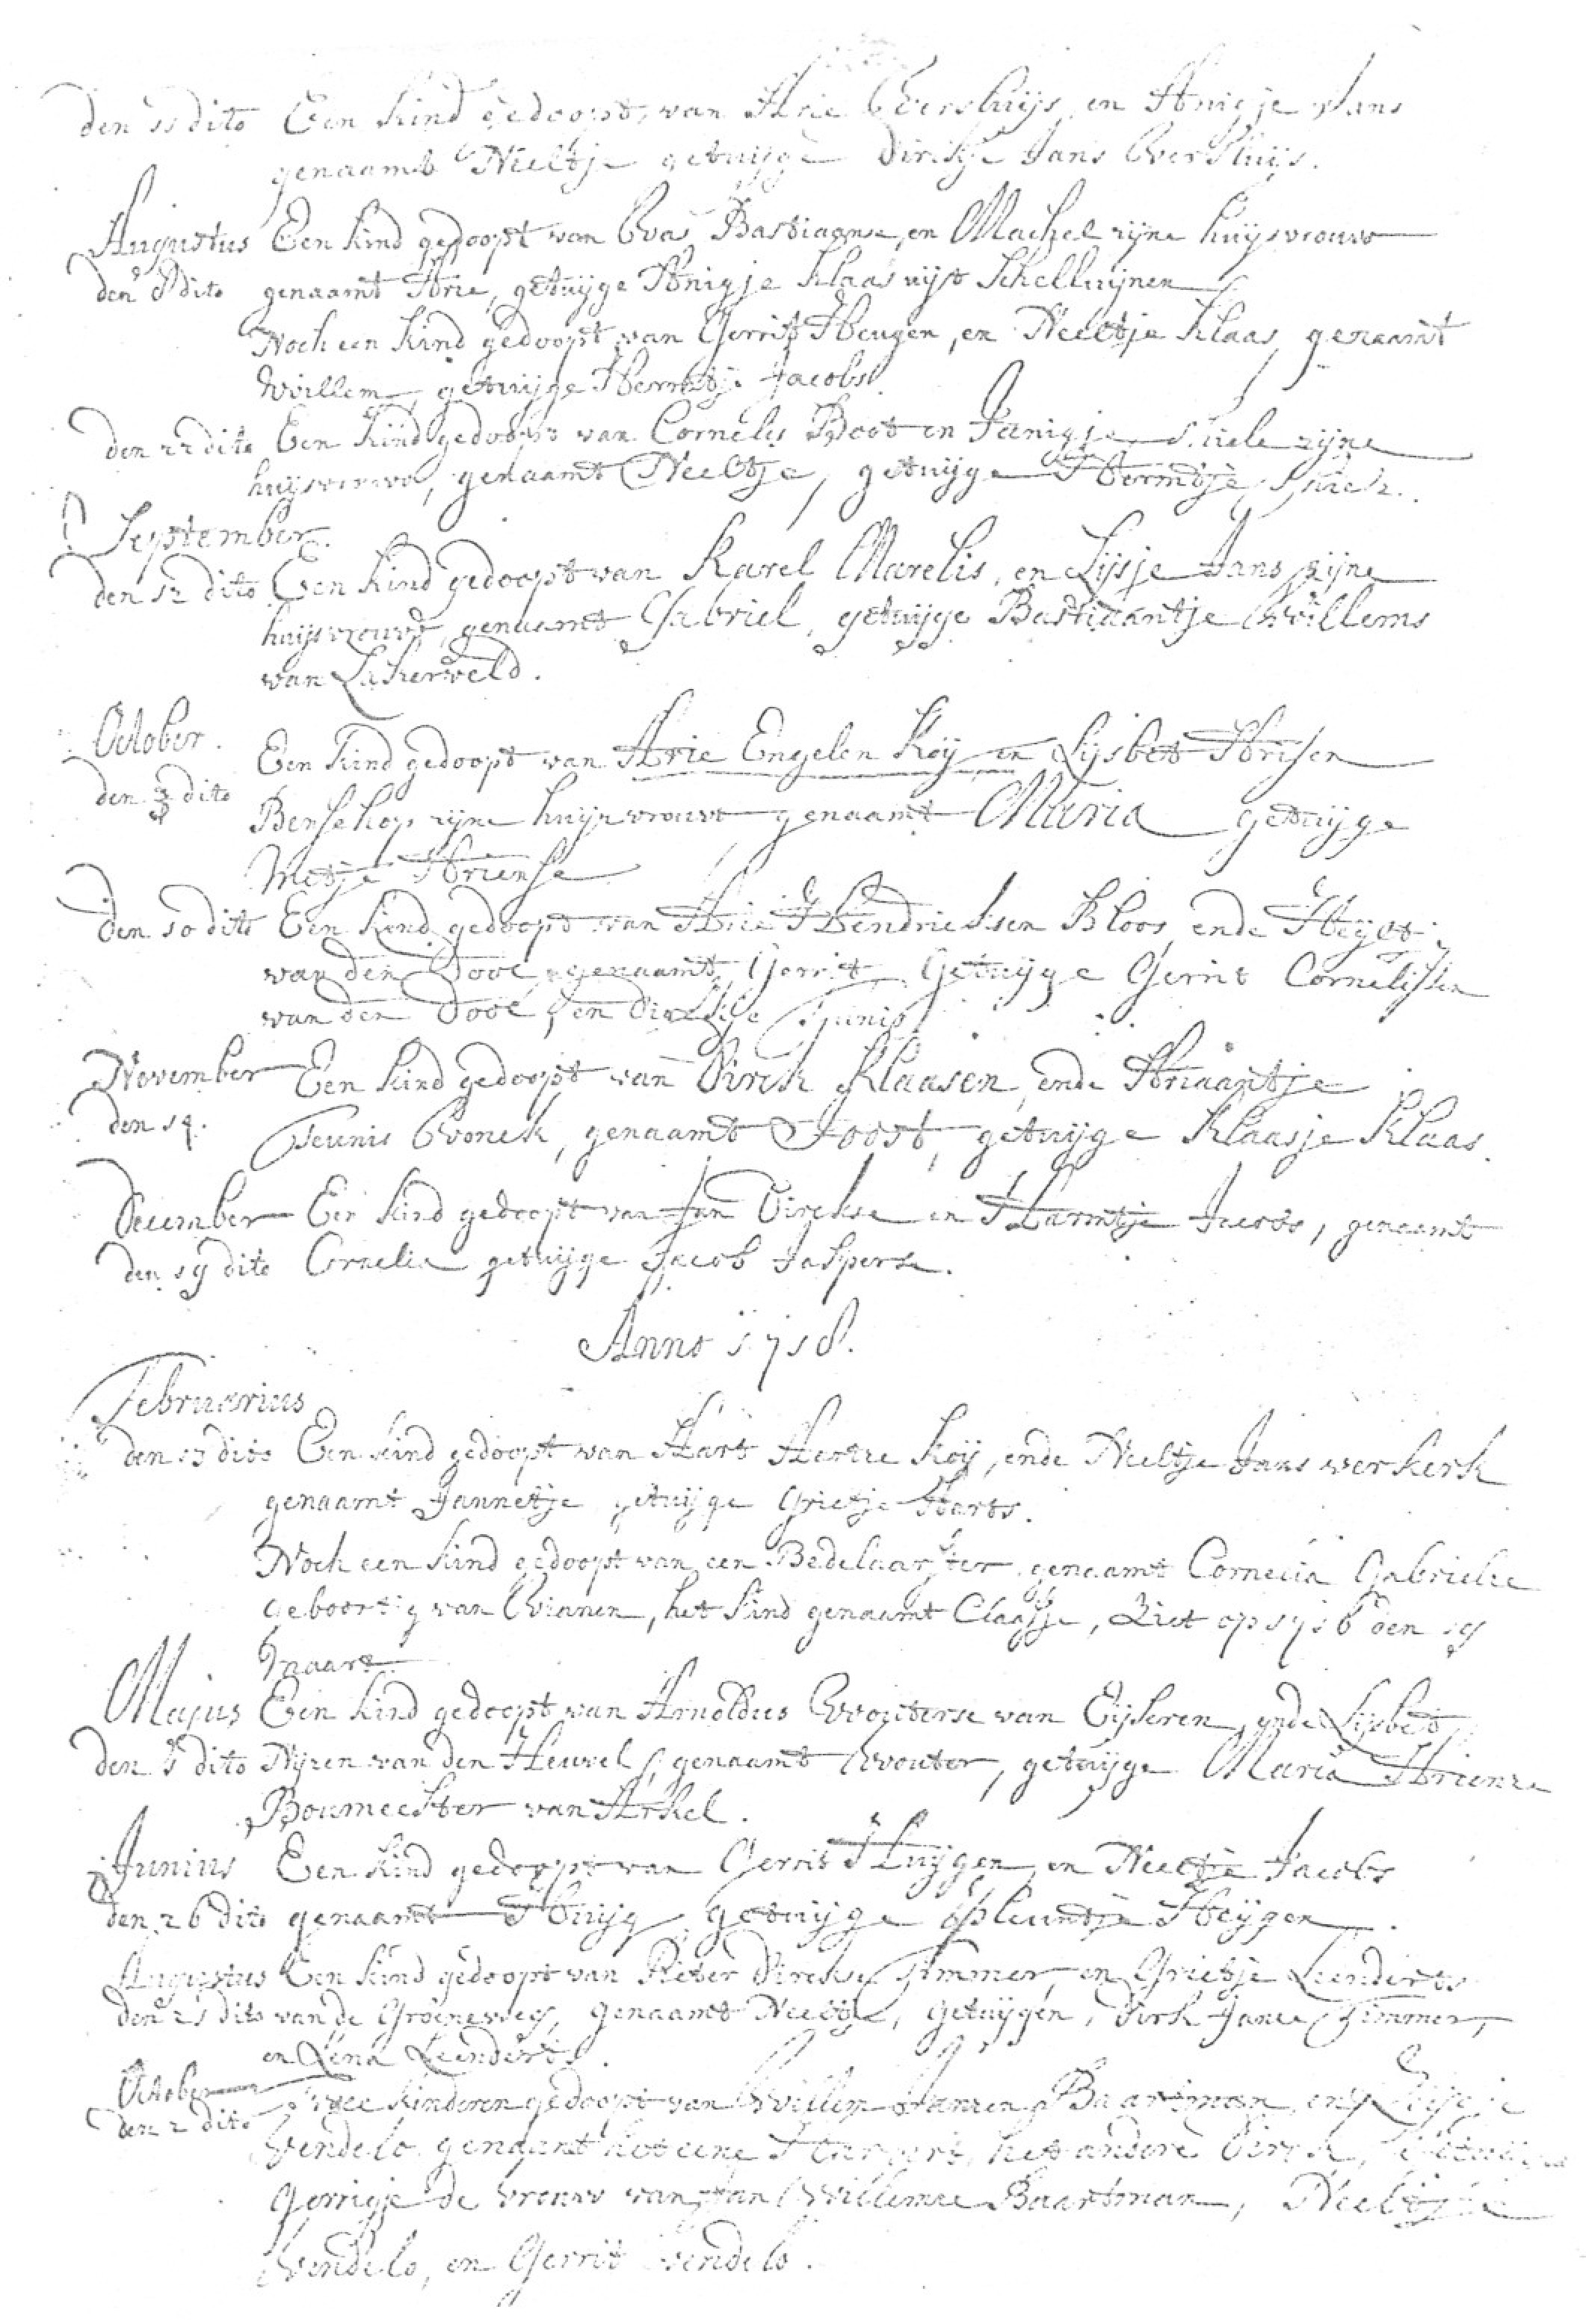 den 11 dito Een kind gedoopt, van Arie Eversluijs, en Anigje Jans
genaamt Neeltje getuijge Dirkje Jans Eversluijs.
Augustus Een kind gedoopt van Bastiaanse, en Machel zijne huijsvrouw
den 8 dito genaamt Arie, getuijge Anigje Klaas uijt Schelluijnen
Noch een kind gedoopt van Gerrit Heugen, en Neeltje Klaas, genaamt
Willem, getuijge Hermtje Jacobs
den 22 dito Een kind gedoopt van Cornelis Boot en Janigje zijne
huijsvrouw, genaamt Neeltje, getuijge Hermtje
September.
den 12 dito Een kind gedoopt van Karel Marelis, en Lijsje Jans zijne
huijsvrouw, genaamt Gabriel, getuijge Bastiaantje Willems
van Lakerveld.
October.
den 3 dito Een kind gedoopt van Arie Engelen Koij en Lijsbet Arisen
Benschop zijne huijsvrouw genaamt Maria getuijge
Metje Ariense
den 10 dito Een kind gedoopt van Arie Hendricksen Bloos, ende
van den Dool, genaamt, Gerrit Getuijge Gerrit Cornelissen
van den Dool, en Dirkje Tunis
November Een kind gedoopt van Dirck Klaasen, ende Ariaantje
den 14. Teunis Vronck, genaamt Joost, getuijge Klaasje Klaas.
December Een kind gedoopt van Jan Dirckse en Harmtje Jacobs, genaamt
den 19 dito Cornelia getuijge Jacob Jasperse.
Anno 1718.
Februarius
den 13 dito Een kind gedoopt van Aart Aertze Koij, ende Neeltje Jans verkerk
genaamt Jannetje getuijge Grietje Aarts.
Noch een kind gedoopt van een Bedelaarster genaamt Cornelia Gabrielse
geboortig van Vianen, het kind genaamt Claasje, Ziet op 1716 den 19
maart
Majus Een kind gedoopt van Arnoldus Wouterse van Eijseren, ende Lijsbet
den 8 dito van den Heuvel, genaamt Wouter, getuijge Maria Arienze
Boumeester van Arkel.
Junius Een kind gedoopt van Gerrit Huijgen, en Neeltje Jacobs
den 26 dito genaamt Huijg, getuijge Pleuntje Heijgen.
Augustus Een kind gedoopt van Pieter Dirckse Timmer, en Grietje Leenderts
den 21 dito van de Groeneweg, genaamt Neeltje, getuijgen, Dirk Janse Timmer,
en Lena Leenderts.
October
den 2 dito Twee kinderen gedoopt van Willem Jansen Baartman, en
Vendelo genaamt het eene het andere Dirck, getuijge
Gerrigje de vrouw van Jan Willemse Baartman, Neeltje
Vendelo, en Gerrit Vendelo.